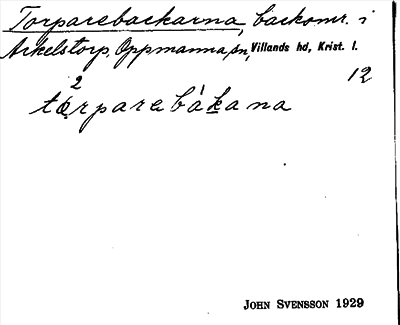 Torparebackarna, backomr. i
Arkelstorp, Oppmanna sn, Villands hd, Krist. l.
12
2
tọrparebákana
John Svensson 1929